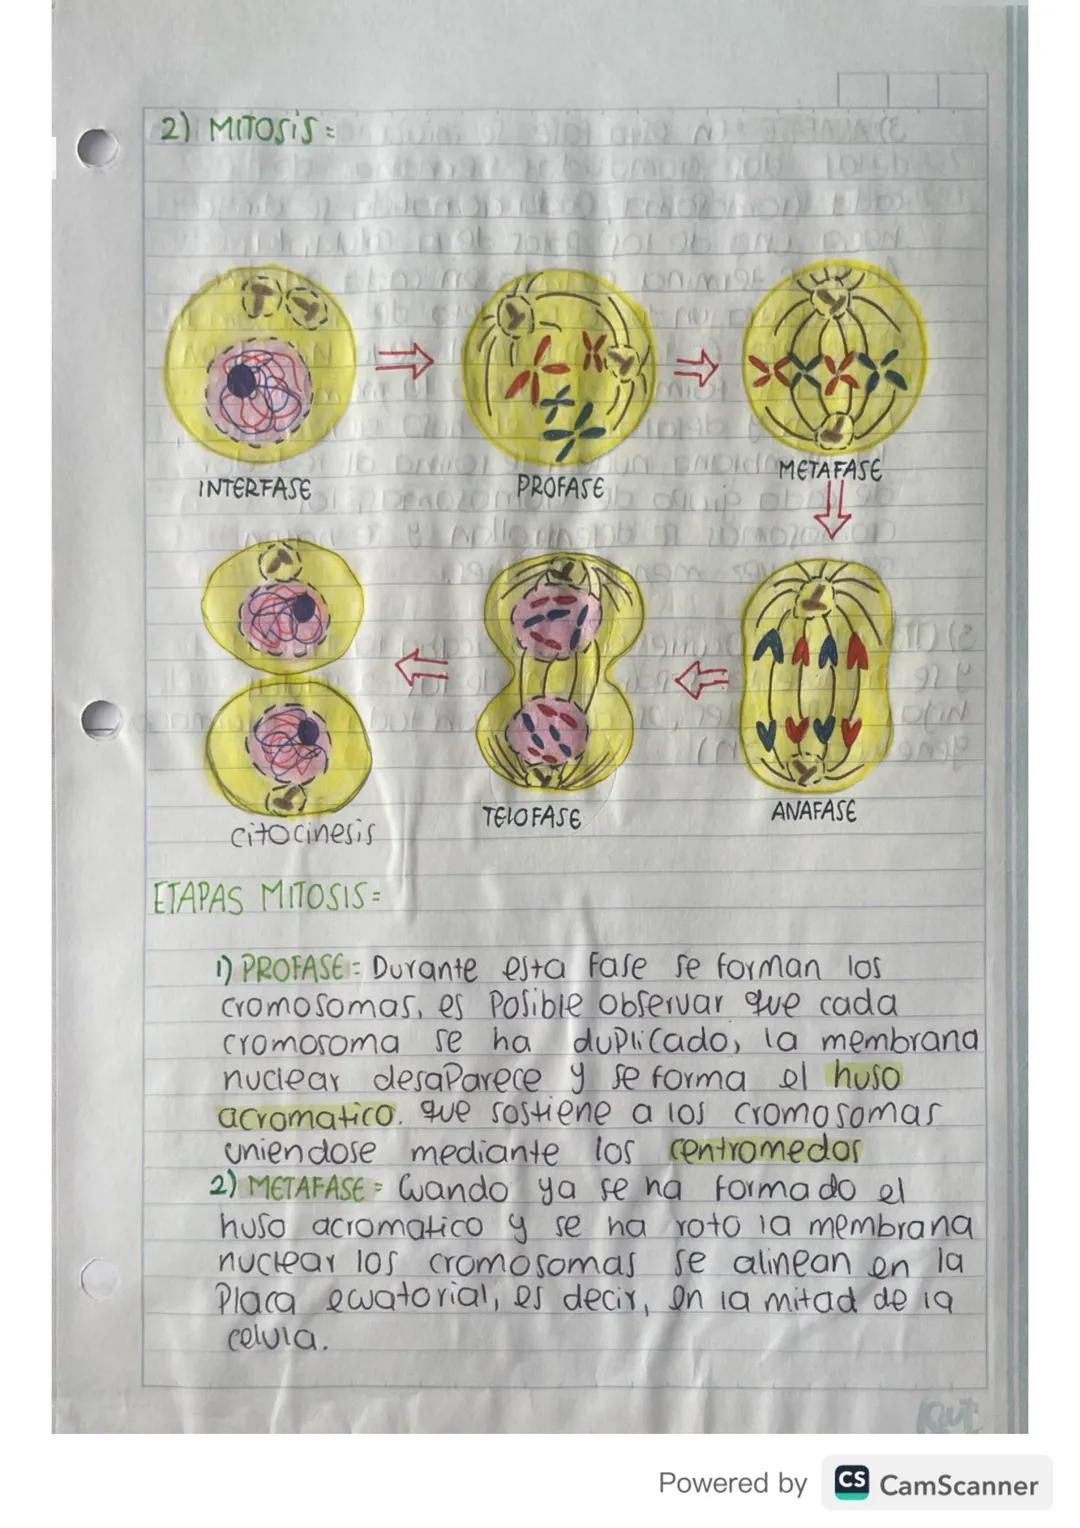 2) MITOSIS =
INTERFASE
PROFASE
METAFASE
citocinesis
TELOFASE
ANAFASE
ETAPAS MITOSIS =
1) PROFASE = Durante esta fase se forman los
cromosomas, es posible observar que cada
cromosoma se ha duplicado, la membrana
nuclear desaparece y se forma el huso
acromatico. que sostiene a los cromosomas
uniendose mediante los centromedos
2) METAFASE = Cuando ya se ha formado el
huso acromatico y se ha roto la membrana
nuclear los cromosomas se alinean en la
Placa ecuatorial, es decir, en la mitad de la
celula.
Powered by CS CamScanner